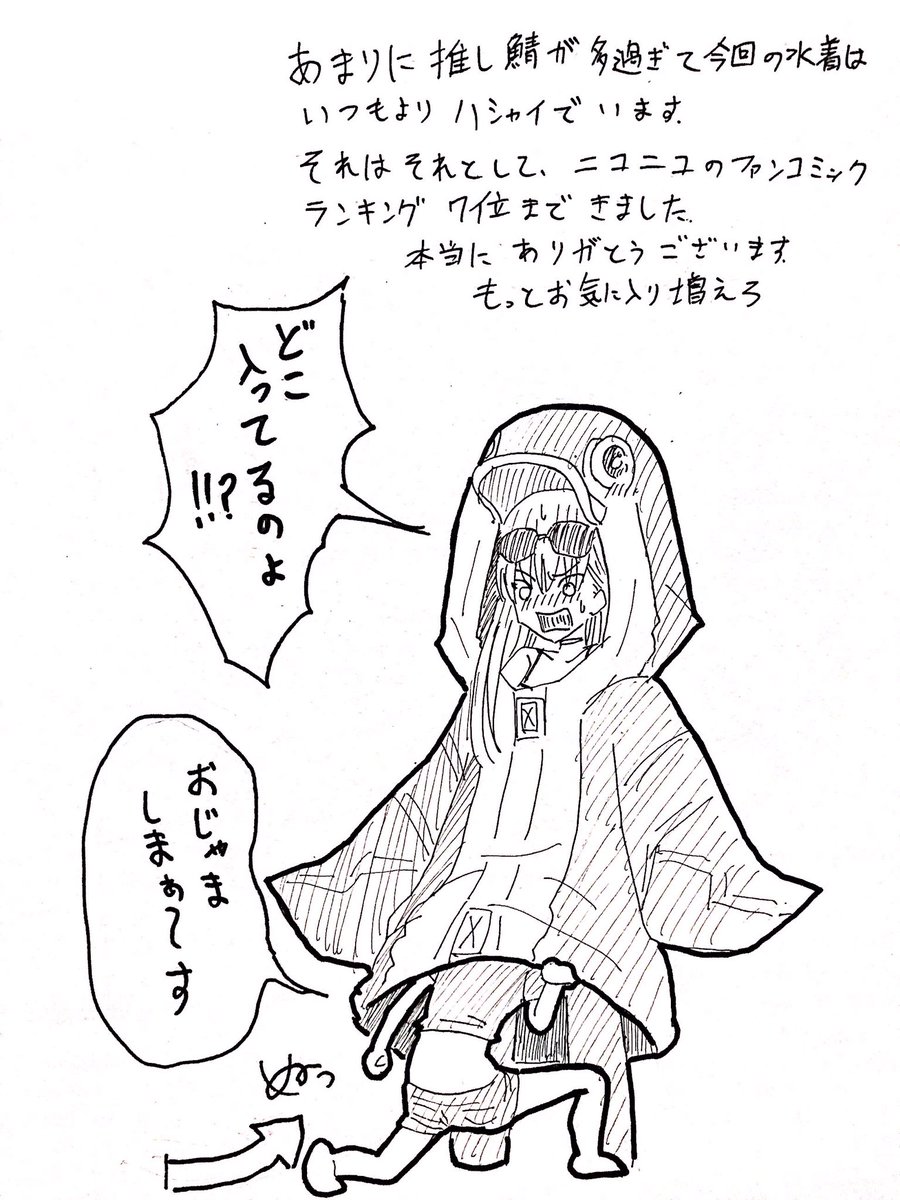 あまりに推し鯖が多過ぎて今回の水着は
いつもよりハシャイでいます.
それはそれとして、ニコニコのファンコミック
ランキング 7位まで きました.
本当に ありがとうございます.
もっとお気に入り増えろ
どこ
入ってるのよ
!!?
おじゃま
しまぁ〜す
ぬっ